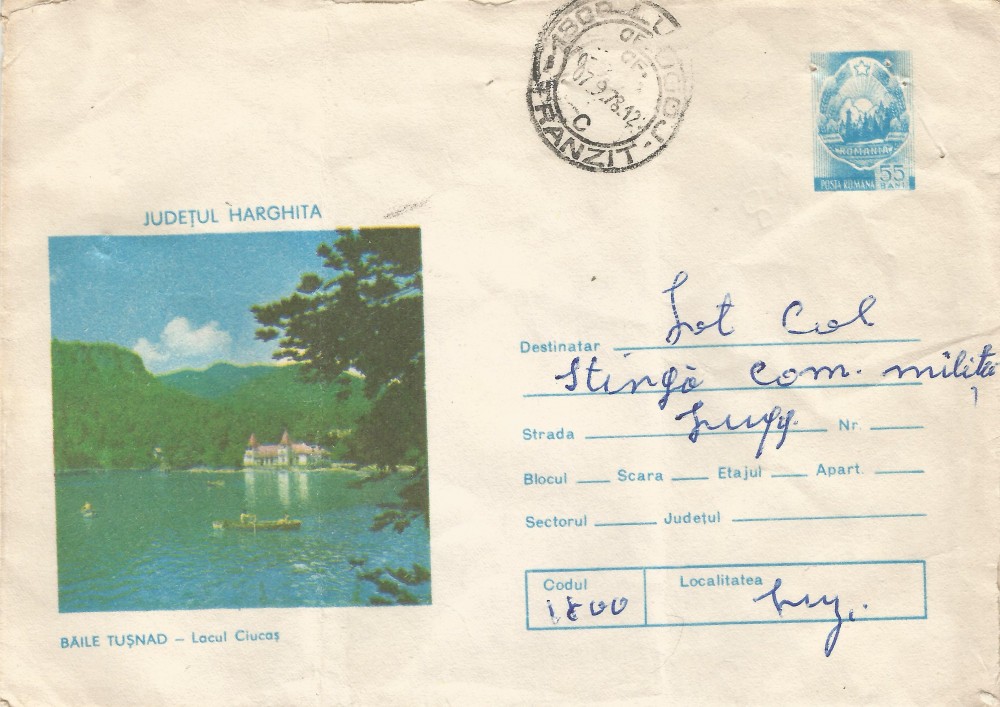 TRANZIT
C
07.9.78.12
ROMANIA
POSTA ROMANA 55 BANI
JUDEȚUL HARGHITA
Destinatar Lot Col
Stîngă com. miliția
Strada Lugg. Nr.
Blocul Scara Etajul Apart.
Sectorul Județul
Codul Localitatea
1800 Lug.
BĂILE TUȘNAD – Lacul Ciucaș